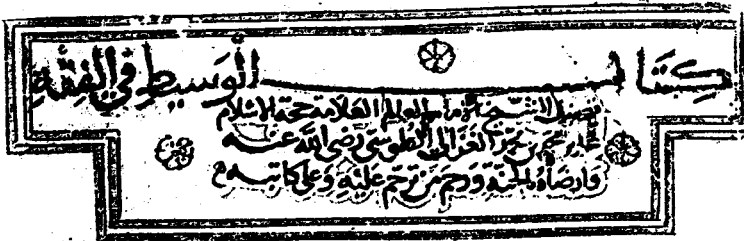 كتاب الوسيط في الفقه
تصنيف الشيخ الإمام العالم العلامة حجة الإسلام
محمد بن محمد الغزالي الطوسي رضي الله عنه
وارضاه بالجنة ورحم من ترحم عليه وعلى كاتبه